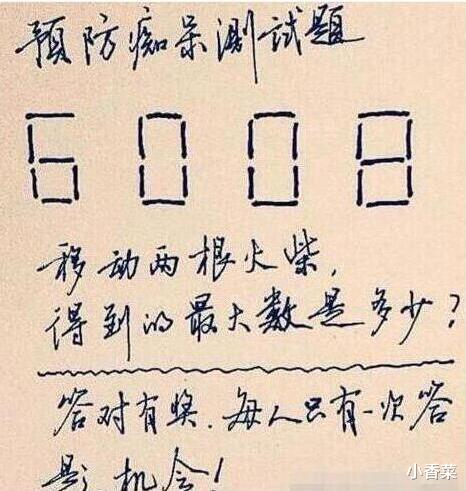 预防痴呆测试题
6008
移动两根火柴，
得到的最大数是多少？
答对有奖．每人只有一次答
题机会！
小香菜